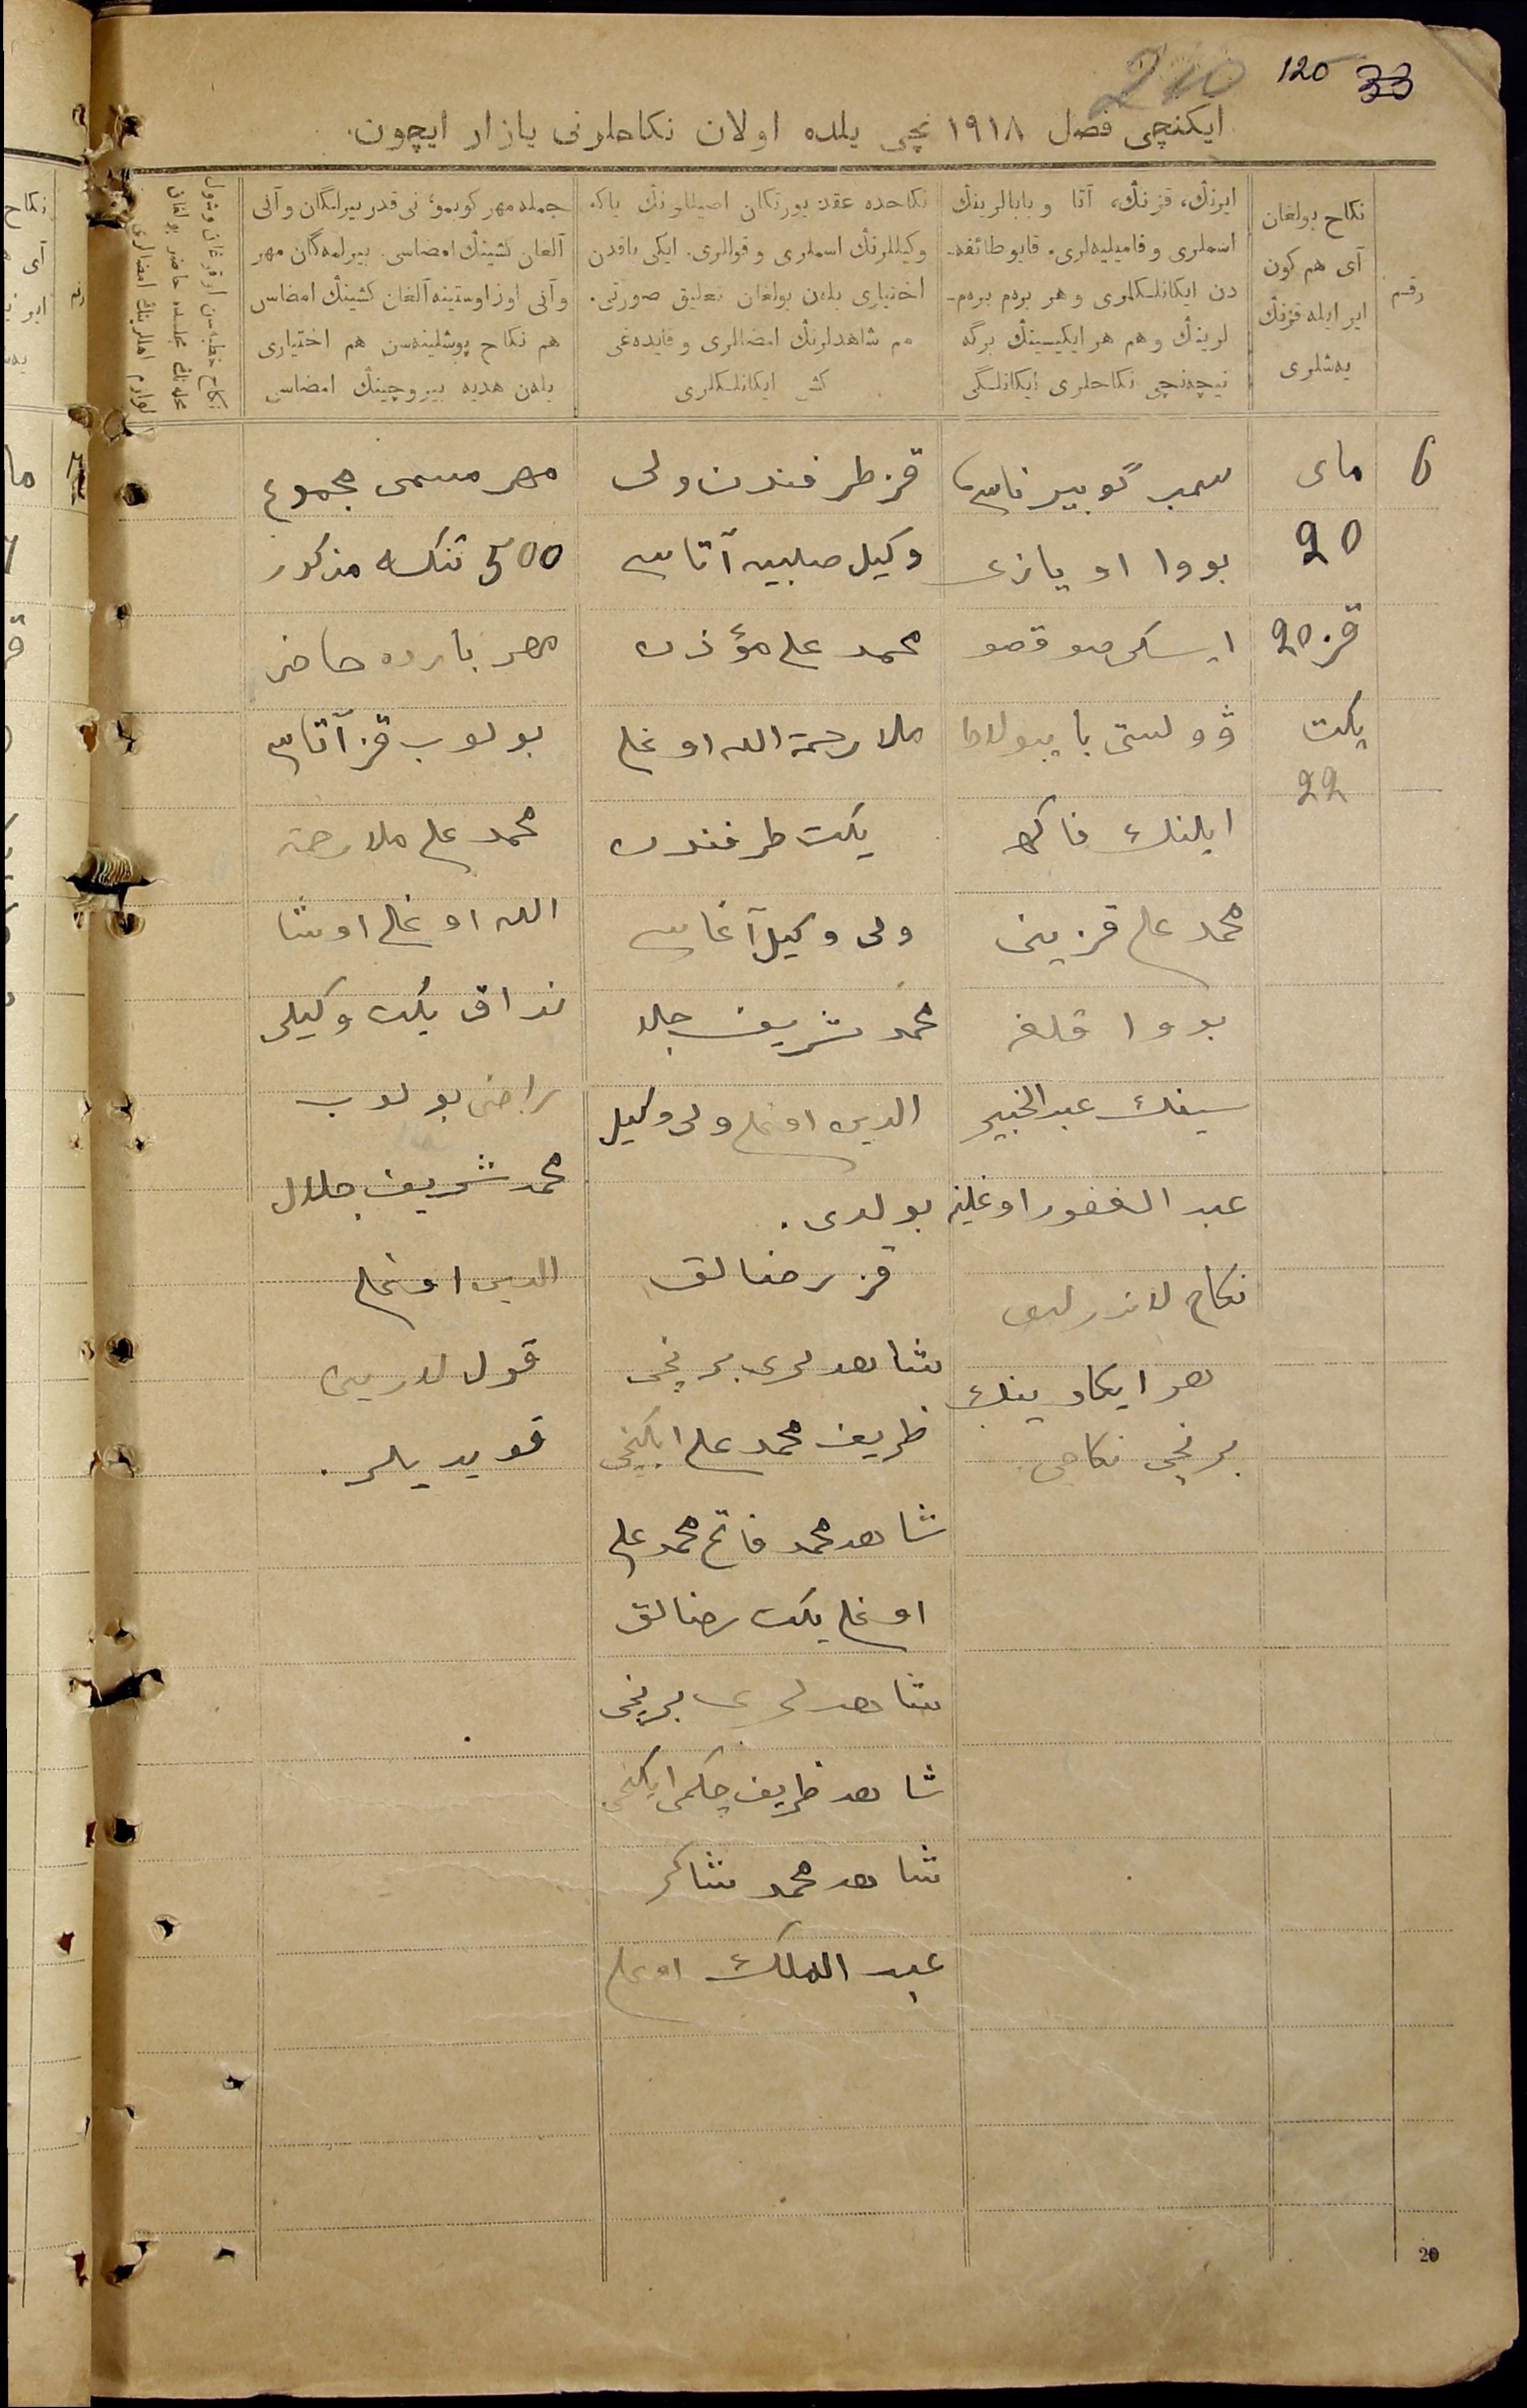 210 120 33
ايكنچی فصل ۱۹۱۸ نچی يلده اولان نكاحلرنی يازار ايچون.
رقم
نكاح بولغان
آی هم كون
اير ايله قزنڭ
يه‌شلری
ايرنڭ، قزنڭ، آتا و بابالرينڭ
اسملری و فاميليه‌لری. قايو طائفه‌-
دن ايكانلكلری و هر برم برم-
لرينڭ و هم هر ايكيسينڭ برگه
نيچه‌نچی نكاحلری ايكانلگی
نكاحده عقد يورتكان اصيللرنڭ ياكه
وكيللرنڭ اسملری و قوللری. ايكی ياقدن
اختياری بلەن بولغان تعليق صورتی.
هم شاهدلرنڭ امضالری و قايده‌غی
كشی ايكانلكلری
جمله مهر كوبمؤ نی قدر بيرلگان و آنی
آلغان كشينڭ امضاسی. بيرلمه‌گان مهر
و آنی اوز اوستينه آلغان كشينڭ امضاسی
هم نكاح پوشلينه‌سن هم اختياری
بلەن هديه بيروچينڭ امضاسی
6
مای
20
قز 20
يكت
22
سمبر گوبيرناسی
بووا اويازی
ايسكی صوقصو
ڤولستی بايبولاط
ايلنڭ فاكه
محمد علی قزينی
بووا قلغه
سينڭ عبد الخبير
عبد الغفور اوغلينه
نكاح لاندرلدی
هر ايكاوينڭ
برنچی نكاحی.
قز طرفندن ولی
وكيل صلبيه آتاسی
محمد علی مؤذن
ملا رحمة الله اوغلی
يكت طرفندن
ولی وكيل آغاسی
محمد شريف جلا
الدين اوغلی ولی وكيل
بولدی.
قز رضالق
شاهدلری برنچی
ظريف محمد علی ايكنچی
شاهد محمد فاتح محمد علی
اوغلی يكت رضالق
شاهدلری برنچی
شاهد ظريف حكمی ايكنچی
شاهد محمد شاكر
عبد الملك اوغلی
مهر مسمی مجموع
500 تنكه مذكور
مهر بارده حاضر
بولوب قز آتاسی
محمد علی ملا رحمة
الله اوغلی اوشا
نداق يكت وكيلی
راضی بولوب
محمد شريف جلال
الدين اوغلی
قوللارين
قويديلر.
20